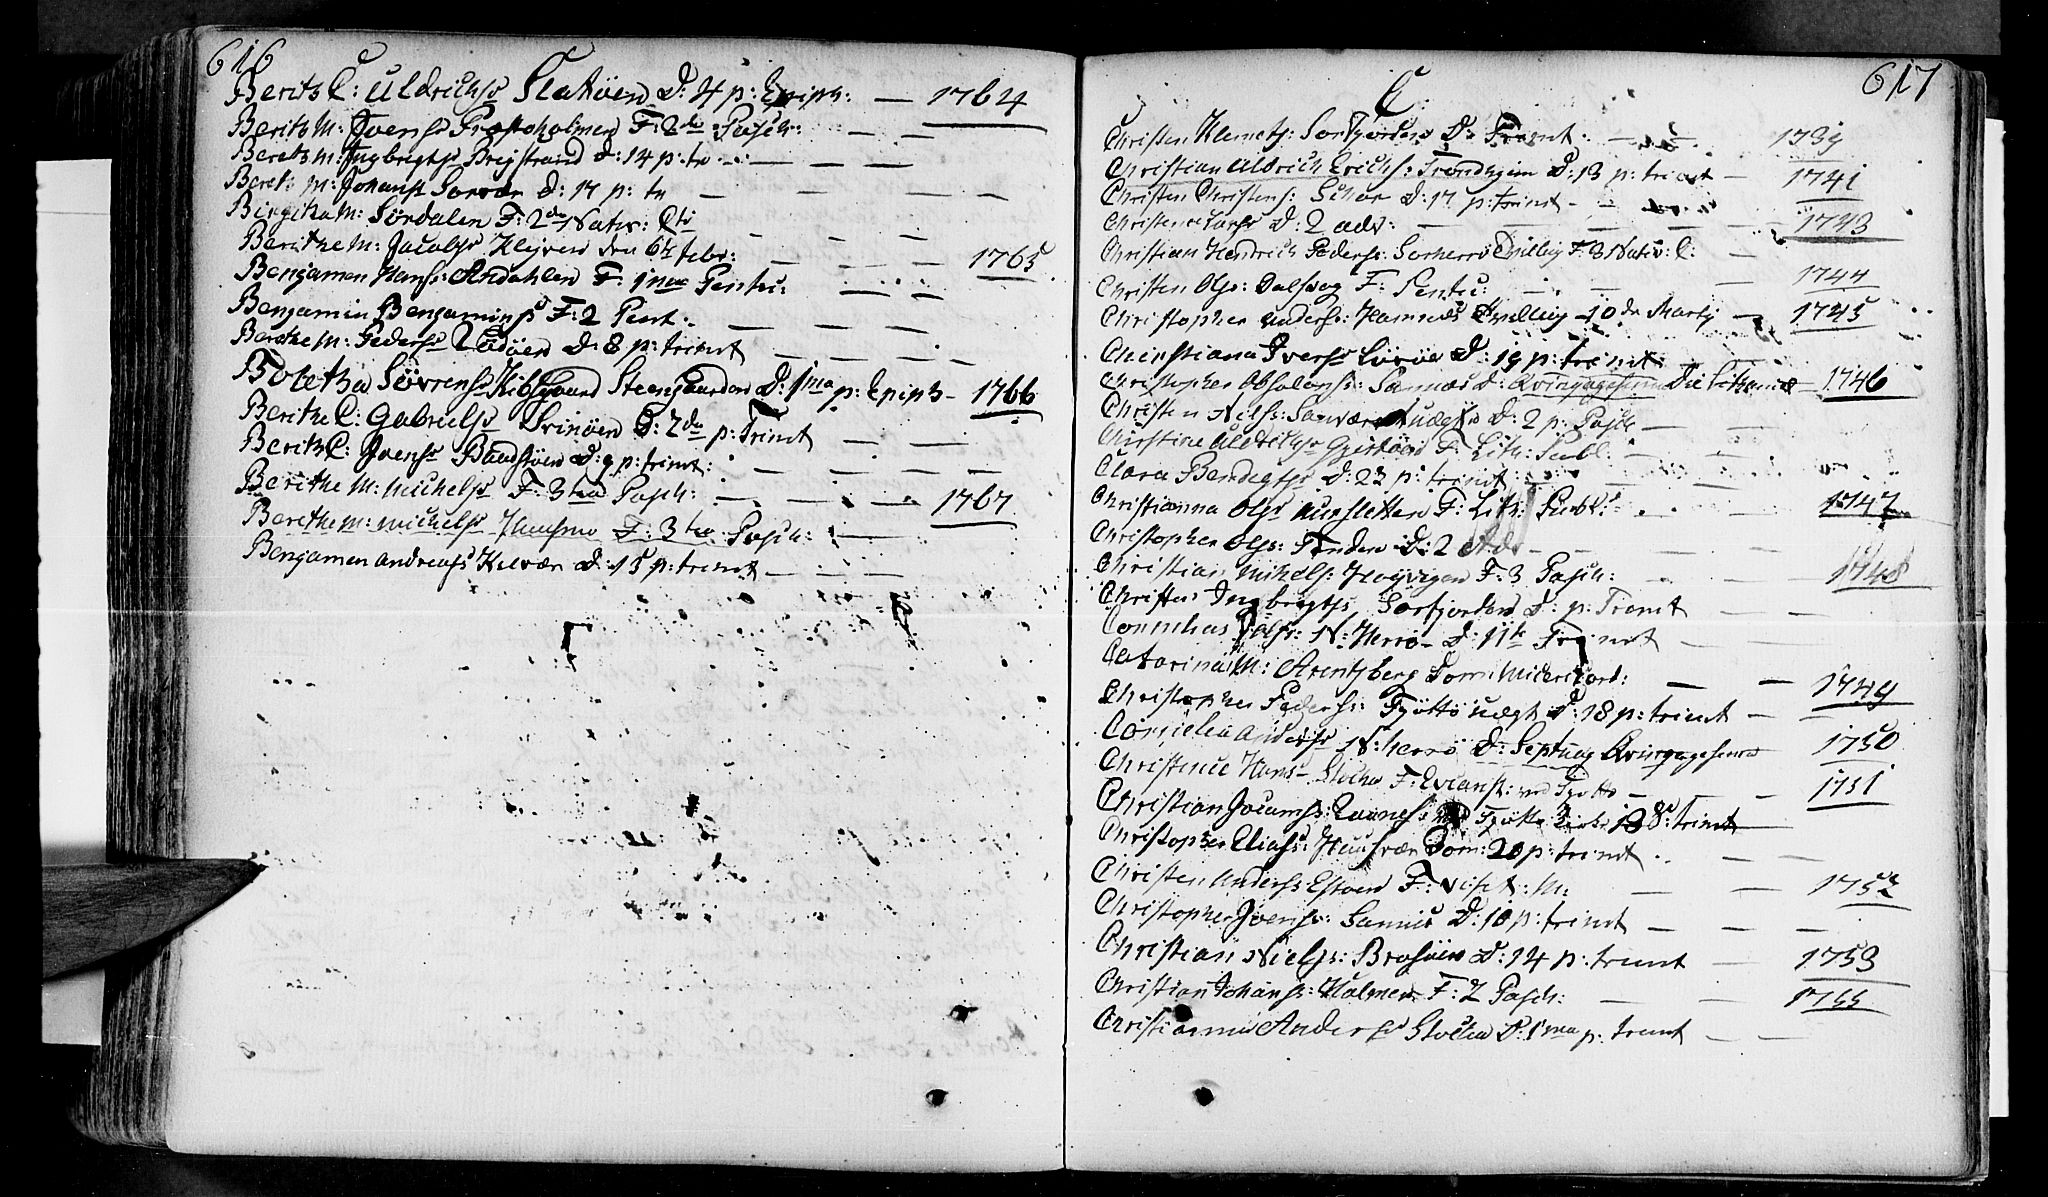 616
Berits C: Uldrichsr Slatöen D: 4 p: Epiph: — 1764
Berits M: Iversr Præstholmen F: 2de Pasch: — —
Berets M: Ingbrigtsr Breistrand D: 14 p: tr — —
Bereth M: Johansr Sorvær D: 17 p: tr — — —
Birgitha M: Sördalen F: 2de Nativ: Cti — — —
Berithe M: Jacobsr Kleiven den 6te febr: — — 1765
Bengamen Hans: Andahlen F: 1mae Pentec: — — —
Bengamin Bengamins F: 2 Pent: — — —
Berithe M: Pedersr D: 8 p: trinit — — —
Boletha Sövrensr Kibsgaard Steensgaarden D: 1ma p: Epiph — 1766
Berithe C: Gabrielsr Svinöen D: 2da p: Trinit — —
Berith C: Joensr Baadstöen D: 9 p: trinit: — — — —
Berithe M: Michelsr F: 3tia Pasch: — — — 1767
Berethe M: Michelsr Huusmo F: 3tia Pasch: — —
Bengamen Andreass Kilvær D: 15 p: trinit — — —
617
C.
Christen Klemets: Sorfjorden D: Trinit: — — 1739
Christian Uldrich Erichs: Trondhgiem D: 13 p: trinit — 1741
Christen Christens: D: 17 p: trinit — —
Christence Larsr D: 2 adv: — — — 1743
Christian Hendrich Peders: Sorherrö Tvilling F: 3 Nativ: C: —
Christen Ols: Dalsvog F: Pentec: — — — 1744
Christopher Anders: Hamnes Tvilling 10de Martj — 1745
Christiana Iversr Löröe D: 19 p: trinit:
Christopher Absalons: Sannæs D: Qvinqvagesima Die — 1746
Christen Niels: Sanvær D: 2 p: Pasch — —
Christine Uldrichsr F: Lith: Publ: — —
Clara Bendegtsr D: 23 p: trinit — —
Christianna Olsr Aursletten F: Lith: Publ: — 1747
Christopher Ols: Tenden D: 2 Adv — — —
Christian Mikels: Høyvigen F: 3 Pasch: — — 1748
Christen Ingbregts Sorfjorden D: p: Trinit — —
Cornelius Ols: N: Herrö D: 11te Trinit — —
Catarina M: Arentsberg Dom: Misericord: — — 1749
Christopher Peders: Tjöttö D: 18 p: trinit —
Cornelia Andersr N: herrö D: Septuag Qvinqvagesima 1750
Christence Hans Stocka F: ved Tjötto — — 1751
Christian Jocums: Tjötto Kirke 18 S: trinit —
Christopher Elias: Huusvær Dom: 20 p: trinit — —
Christen Anders: F: Visit: M: — — 1752
Christopher Joens: Sannis D: 10 p: trinit — — —
Christian Niels: Brasöen D: 14 p: trinit — 1753
Christian Johans: Holmen F: 2 Pasch: — — 1755
Christianna Andersr Stocka D: 1ma p: trinit — —